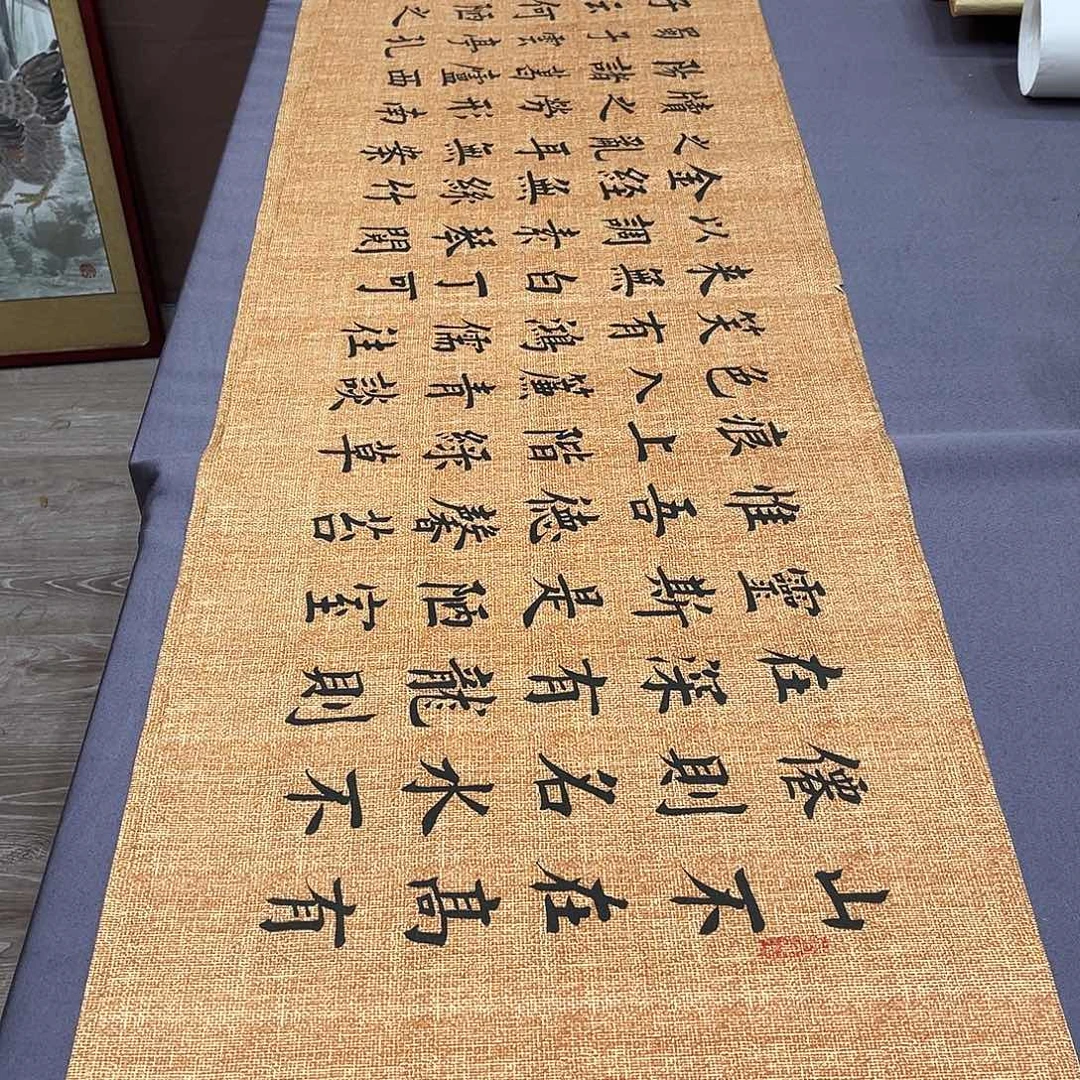 山不在髙有
僊則名水不
在深有龍則
靈斯是陋室
惟吾德馨苔
痕上階綠草
色入簾青談
笑有鴻儒往
来無白丁可
以調素琴閱
金経無絲竹
之亂耳無案
牘之勞形南
陽諸葛廬西
蜀子雲亭孔
子云何陋之